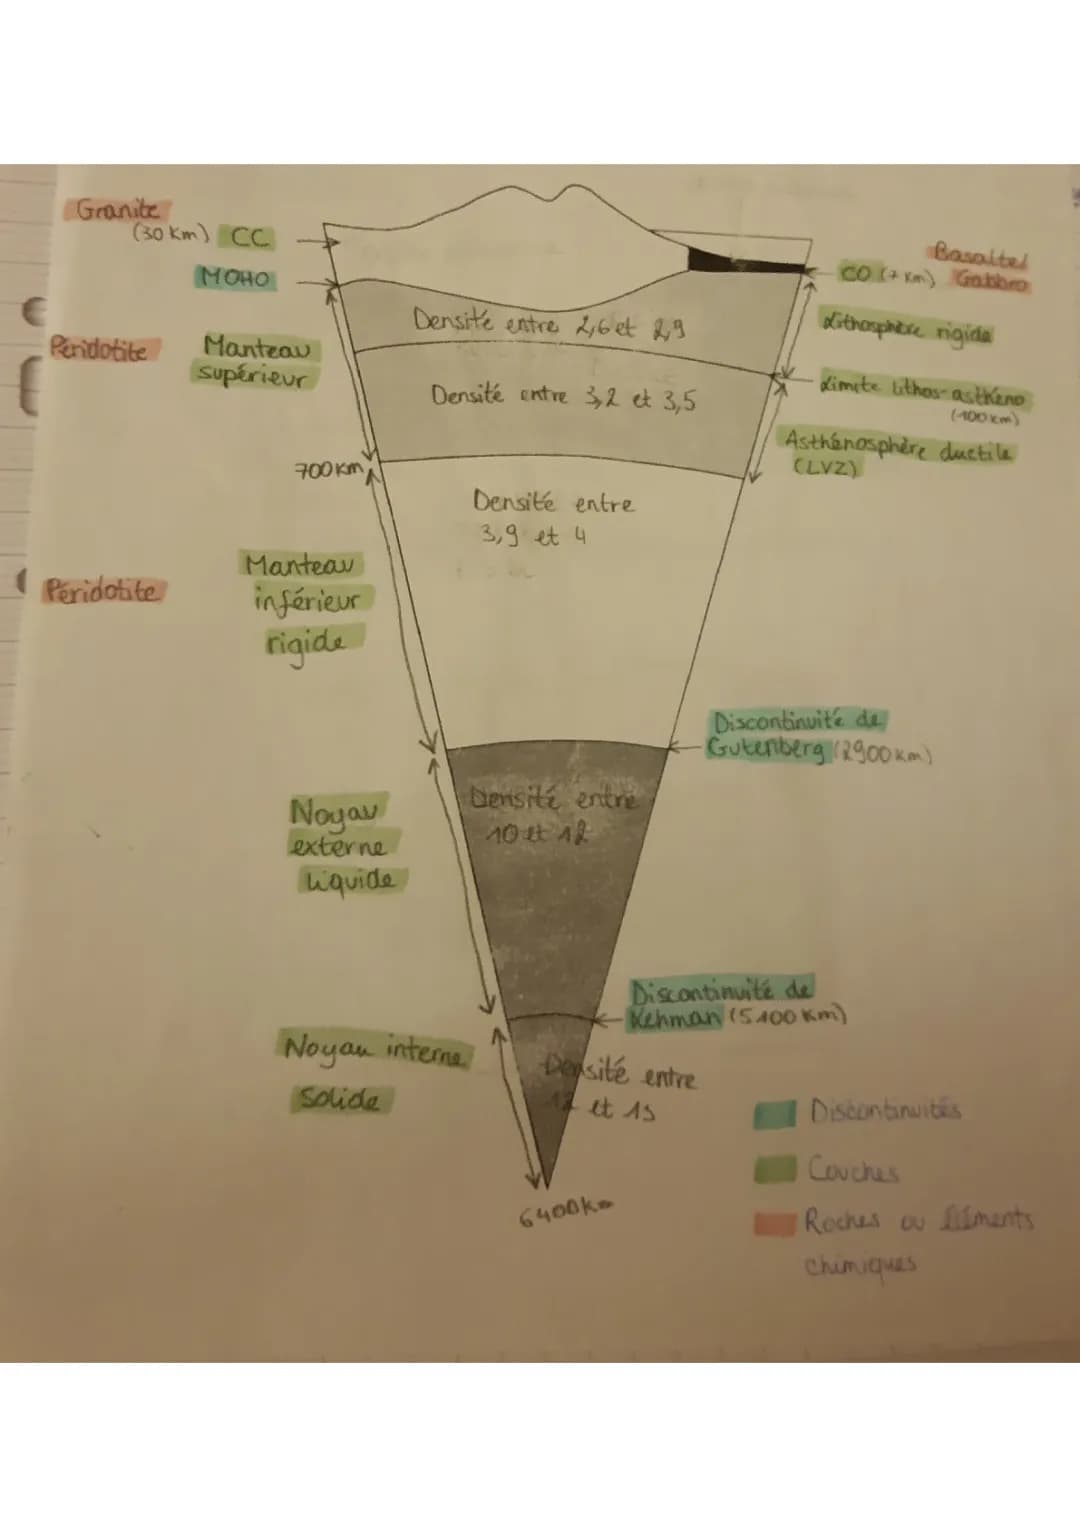 Granite
(30 km) CC
MOHO
Péridotite
Manteau
supérieur
700 km
Densité entre 2,6 et 2,9
Densité entre 3,2 et 3,5
Densité entre
3,9 et 4
Basaltes
CO (7 km) Gabbro
Lithosphère rigide
Limite lithos-asthéno
(100 km)
Asthénosphère ductile
(LVZ)
Péridotite
Manteau
inférieur
rigide
Discontinuité de
Gutenberg (2900 km)
Noyau
externe
liquide
Densité entre
10 et 12
Discontinuité de
Lehman (5100 km)
Noyau interne
solide
Densité entre
12 et 13
6400 km
Discontinuités
Couches
Roches ou éléments
chimiques